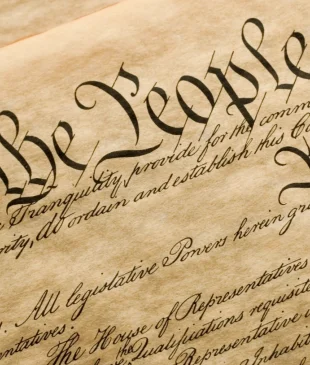 the People
Tranquility, provide for the comm
rity, do ordain and establish this Co
. All legislative Powers herein gra
ntatives.
The House of Representatives
the Qualifications requisite
Representative
Inhabit